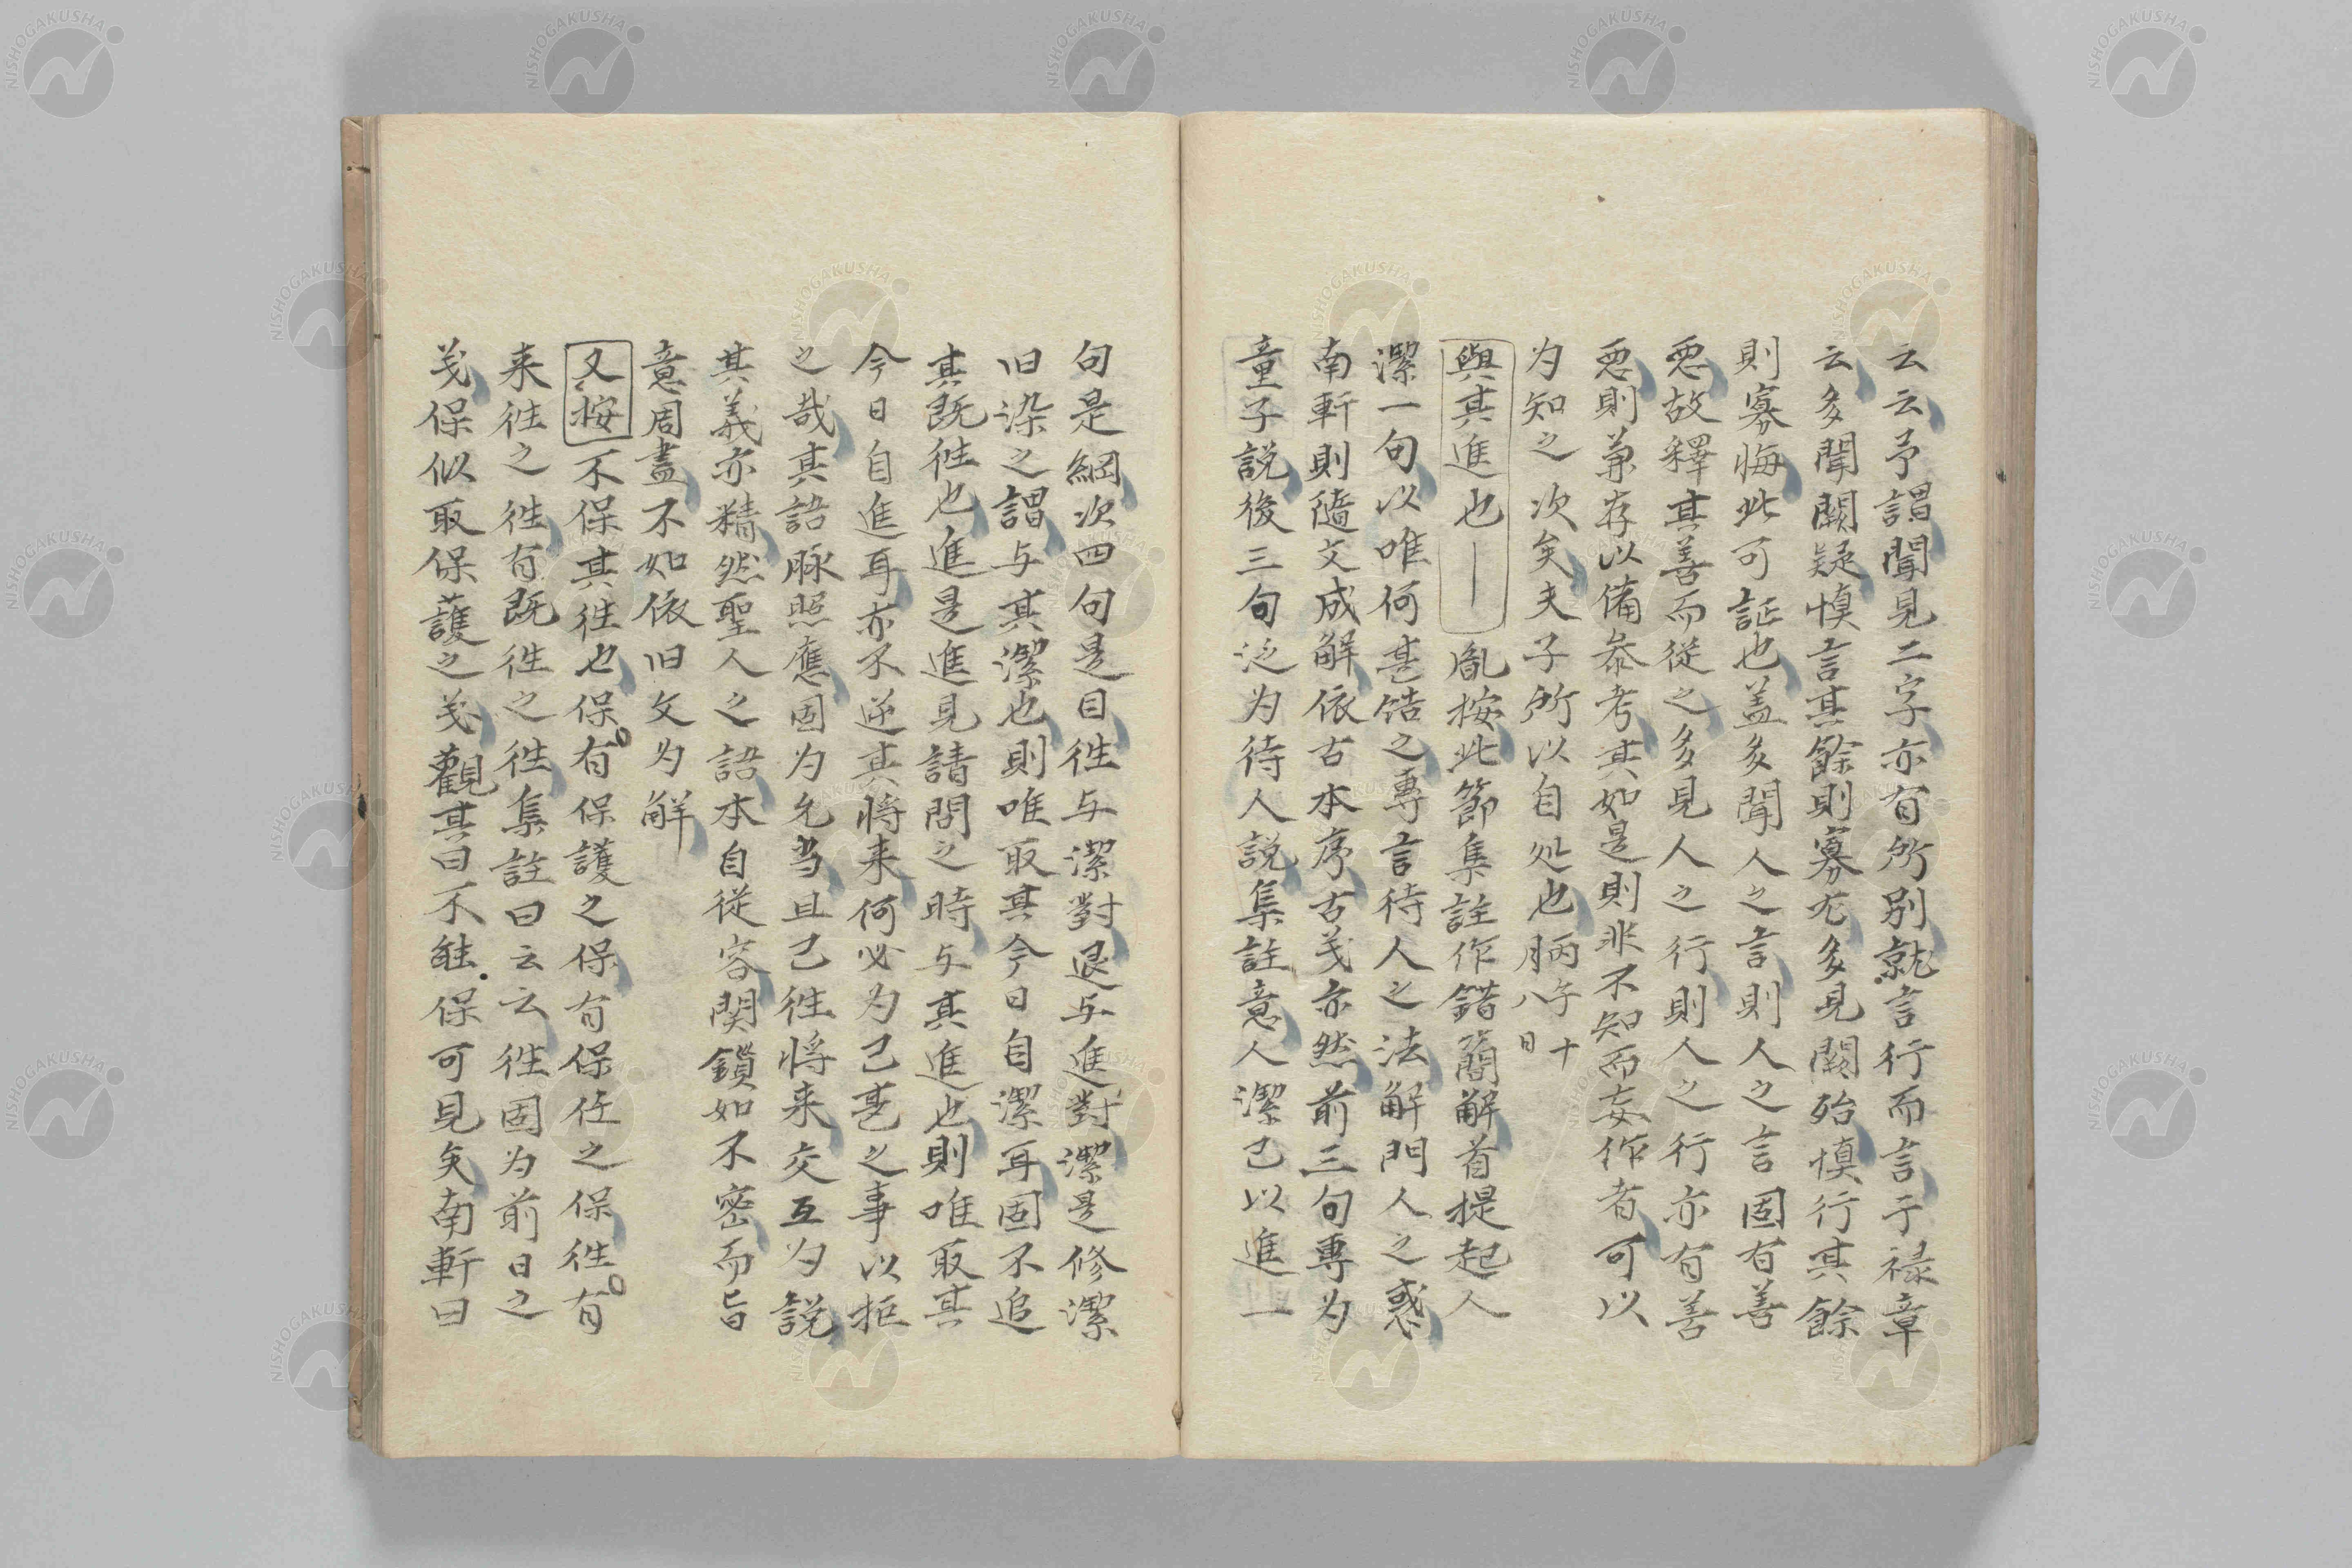 云云予謂聞見二字亦有所別就言行而言于禄章
云多聞闕疑慎言其餘則寡尤多見闕殆慎行其餘
則寡悔此可証也盖多聞人之言則人之言固有善
悪故釋其善而從之多見人之行則人之行亦有善
悪則兼存以備參考其如是則非不知而妄作者可以
为知之次矣夫子所以自処也丙午十月八日
與其進也｜胤按此節集註作錯簡解首提起人
潔一句以唯何甚结之專言待人之法解門人之惑
南軒則隨文成解依古本序古義亦然前三句專为
童子説後三句泛为待人説集註意人潔己以進一
句是綱次四句是目徃与潔對退与進對潔是修潔
旧染之謂与其潔也則唯取其今日自潔耳固不追
其既徃也進是進見請問之時与其進也則唯取其
今日自進耳亦不逆其将来何必为已甚之事以拒
之哉其語脉照應固为允当且已徃将来交互为説
其義亦精然聖人之語本自從容関鎖如不密而旨
意周盡不如依旧文为解
又按不保其徃也保有保護之保有保任之保徃有
来徃之徃有既徃之徃集註曰云云徃固为前日之
義保似取保護之義觀其曰不能保可見矣南軒曰
NISHOGAKUSHA